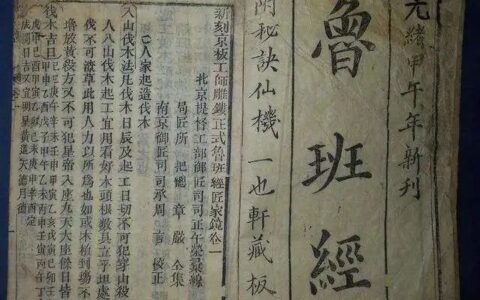 光緒甲午年新刊
魯班經
附秘訣仙機 一也軒藏板
新刻京板工師雕鏤正式魯班經匠家鏡卷一
北京提督工部御匠司司正午榮彙編
局匠所把總章嚴全集
南京御匠司司承周言校正
人家起造伐木
入山伐木法凡伐木日辰及起工日切不可犯穿山殺
入山伐木起工宜用看好木頭根數具立平坦處
伐不可潦草此用人力以所為也如或木植到塲不
堆放黃殺方又不可犯皇帝八座九天大座餘日皆吉
伐木吉日